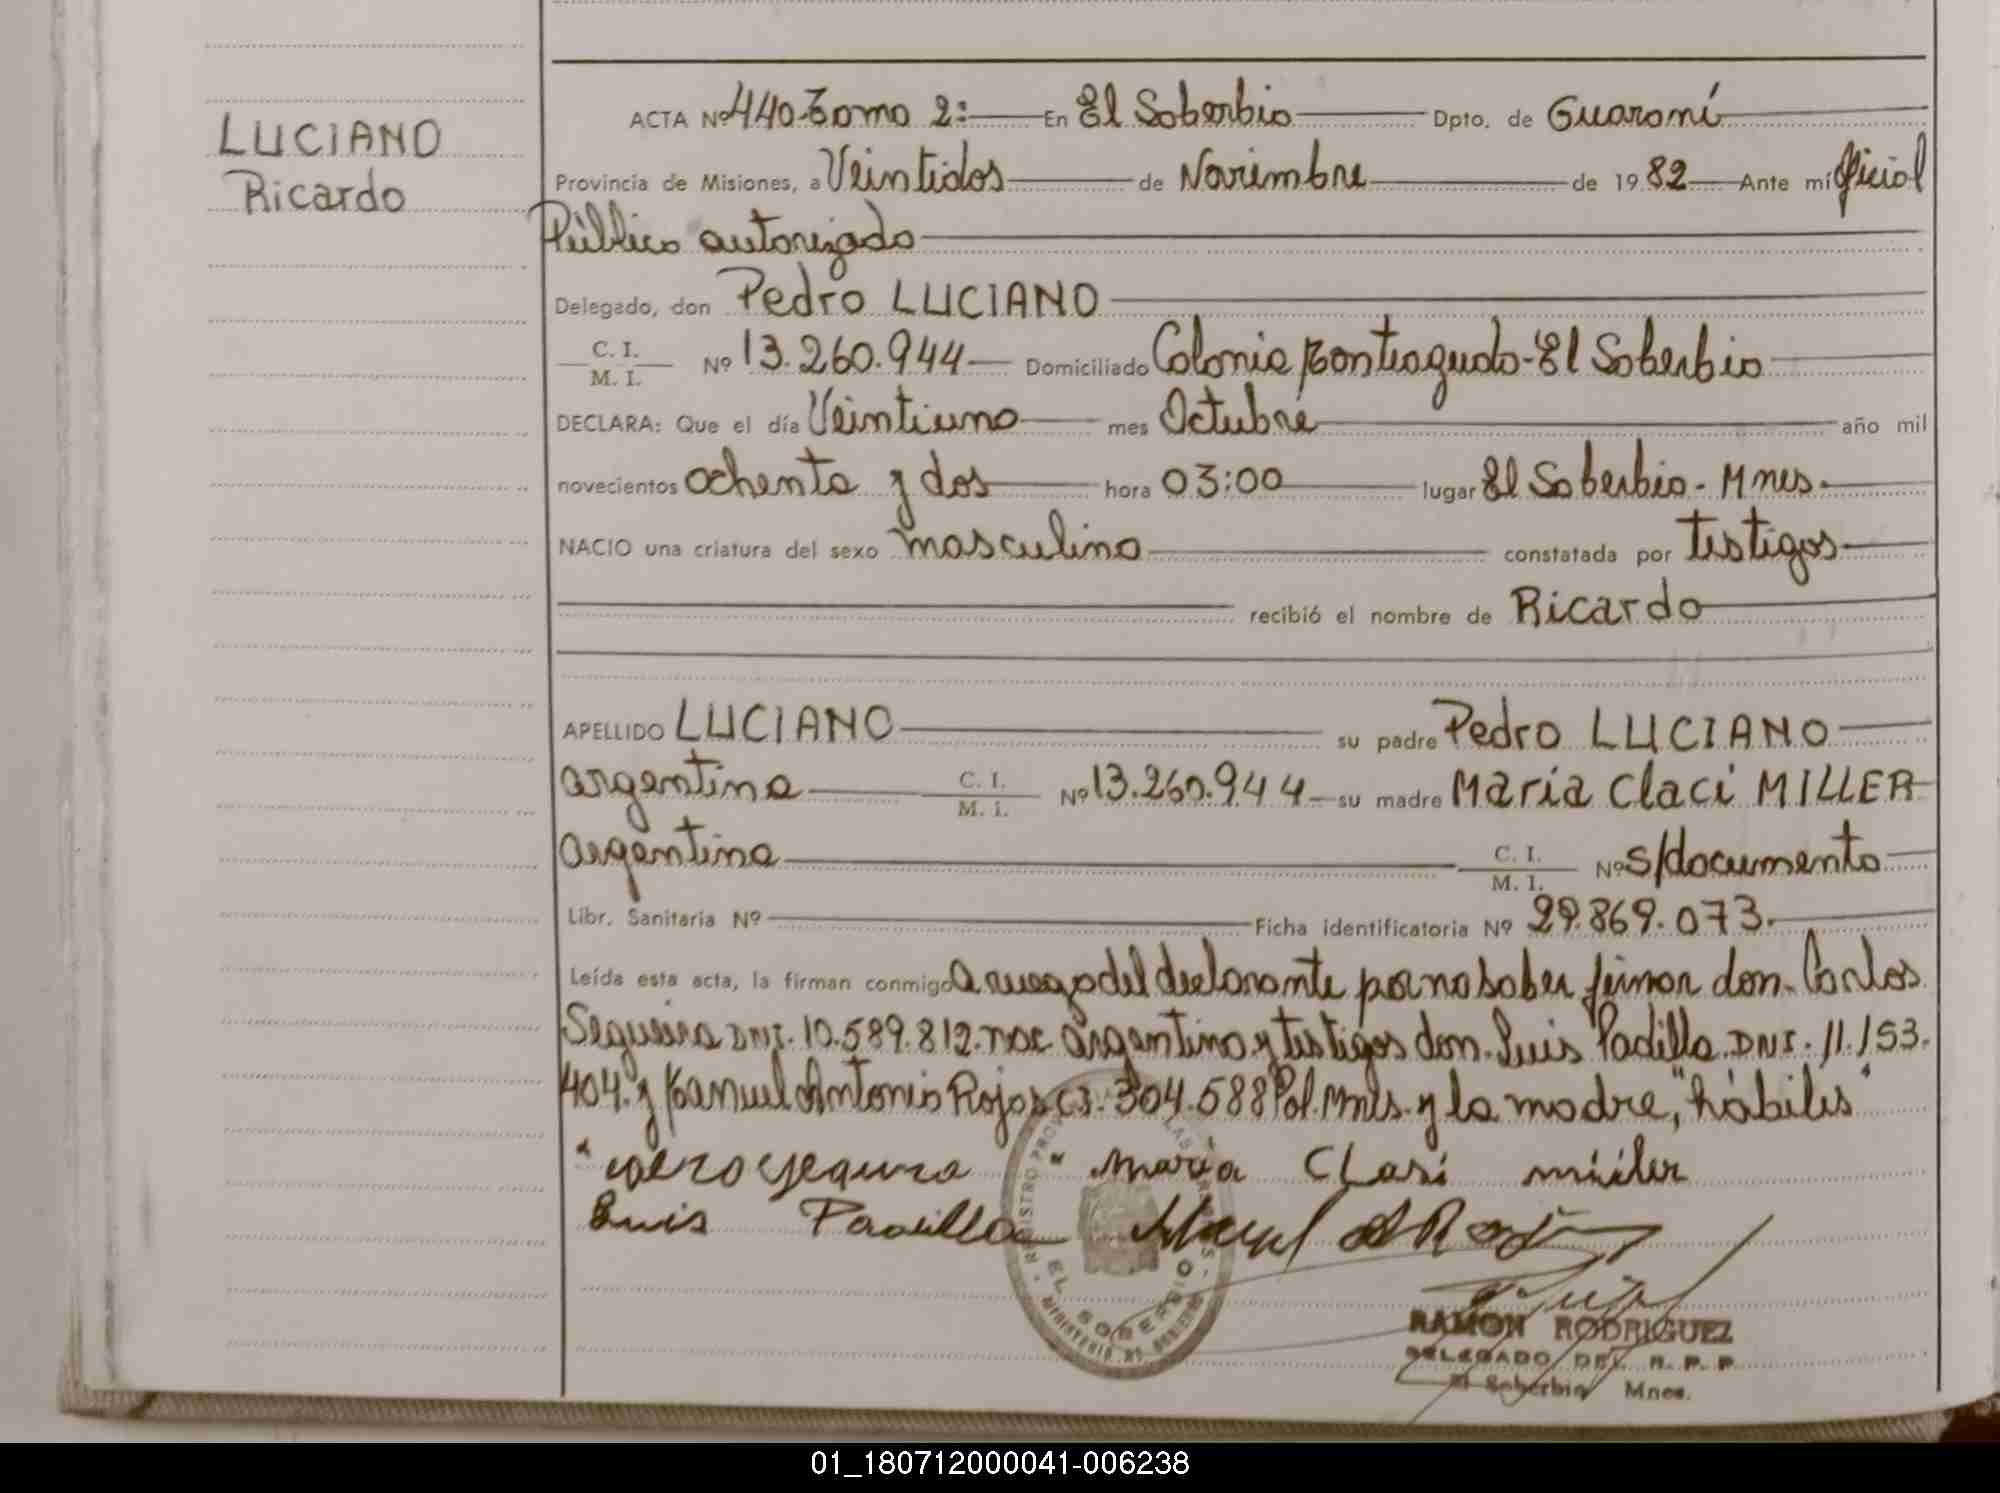 LUCIANO
Ricardo
ACTA Nº 440-Tomo 2: En El Soberbio Dpto. de Guaraní
Provincia de Misiones, a Veintidos de Noviembre de 1982 Ante mí Oficial
Público autorizado
Delegado, don Pedro LUCIANO
C. I.
M. I. Nº 13.260.944 Domiciliado Colonia Montiagudo-El Soberbio
DECLARA: Que el día Veintiuno mes Octubre año mil
novecientos ochenta y dos hora 03:00 lugar El Soberbio-Mnes.
NACIO una criatura del sexo masculino constatada por testigos
recibió el nombre de Ricardo
APELLIDO LUCIANO su padre Pedro LUCIANO
argentina C. I.
M. I. Nº 13.260.944 su madre María Claci MILLER
argentina C. I.
M. I. Nº s/documento
Libr. Sanitaria Nº Ficha identificatoria Nº 29.869.073.
Leída esta acta, la firman conmigo A ruego del declarante por no saber firmar don. Carlos
Segueira DNI. 10.589.812. nac argentino y testigos don. Luis Padilla. DNI. 11.153.
404. y Manuel Antonio Rojas CI. 304.588 Pol. Mnes. y la madre, "hábiles"
maria Clasi miiler
Luis Padilla
REGISTRO PROVINCIAL DE LAS PERSONAS
EL SOBERBIO
MINISTERIO DE GOBIERNO
RAMON RODRIGUEZ
DELEGADO DEL R. P. P.
El Soberbio Mnes.
01_180712000041-006238